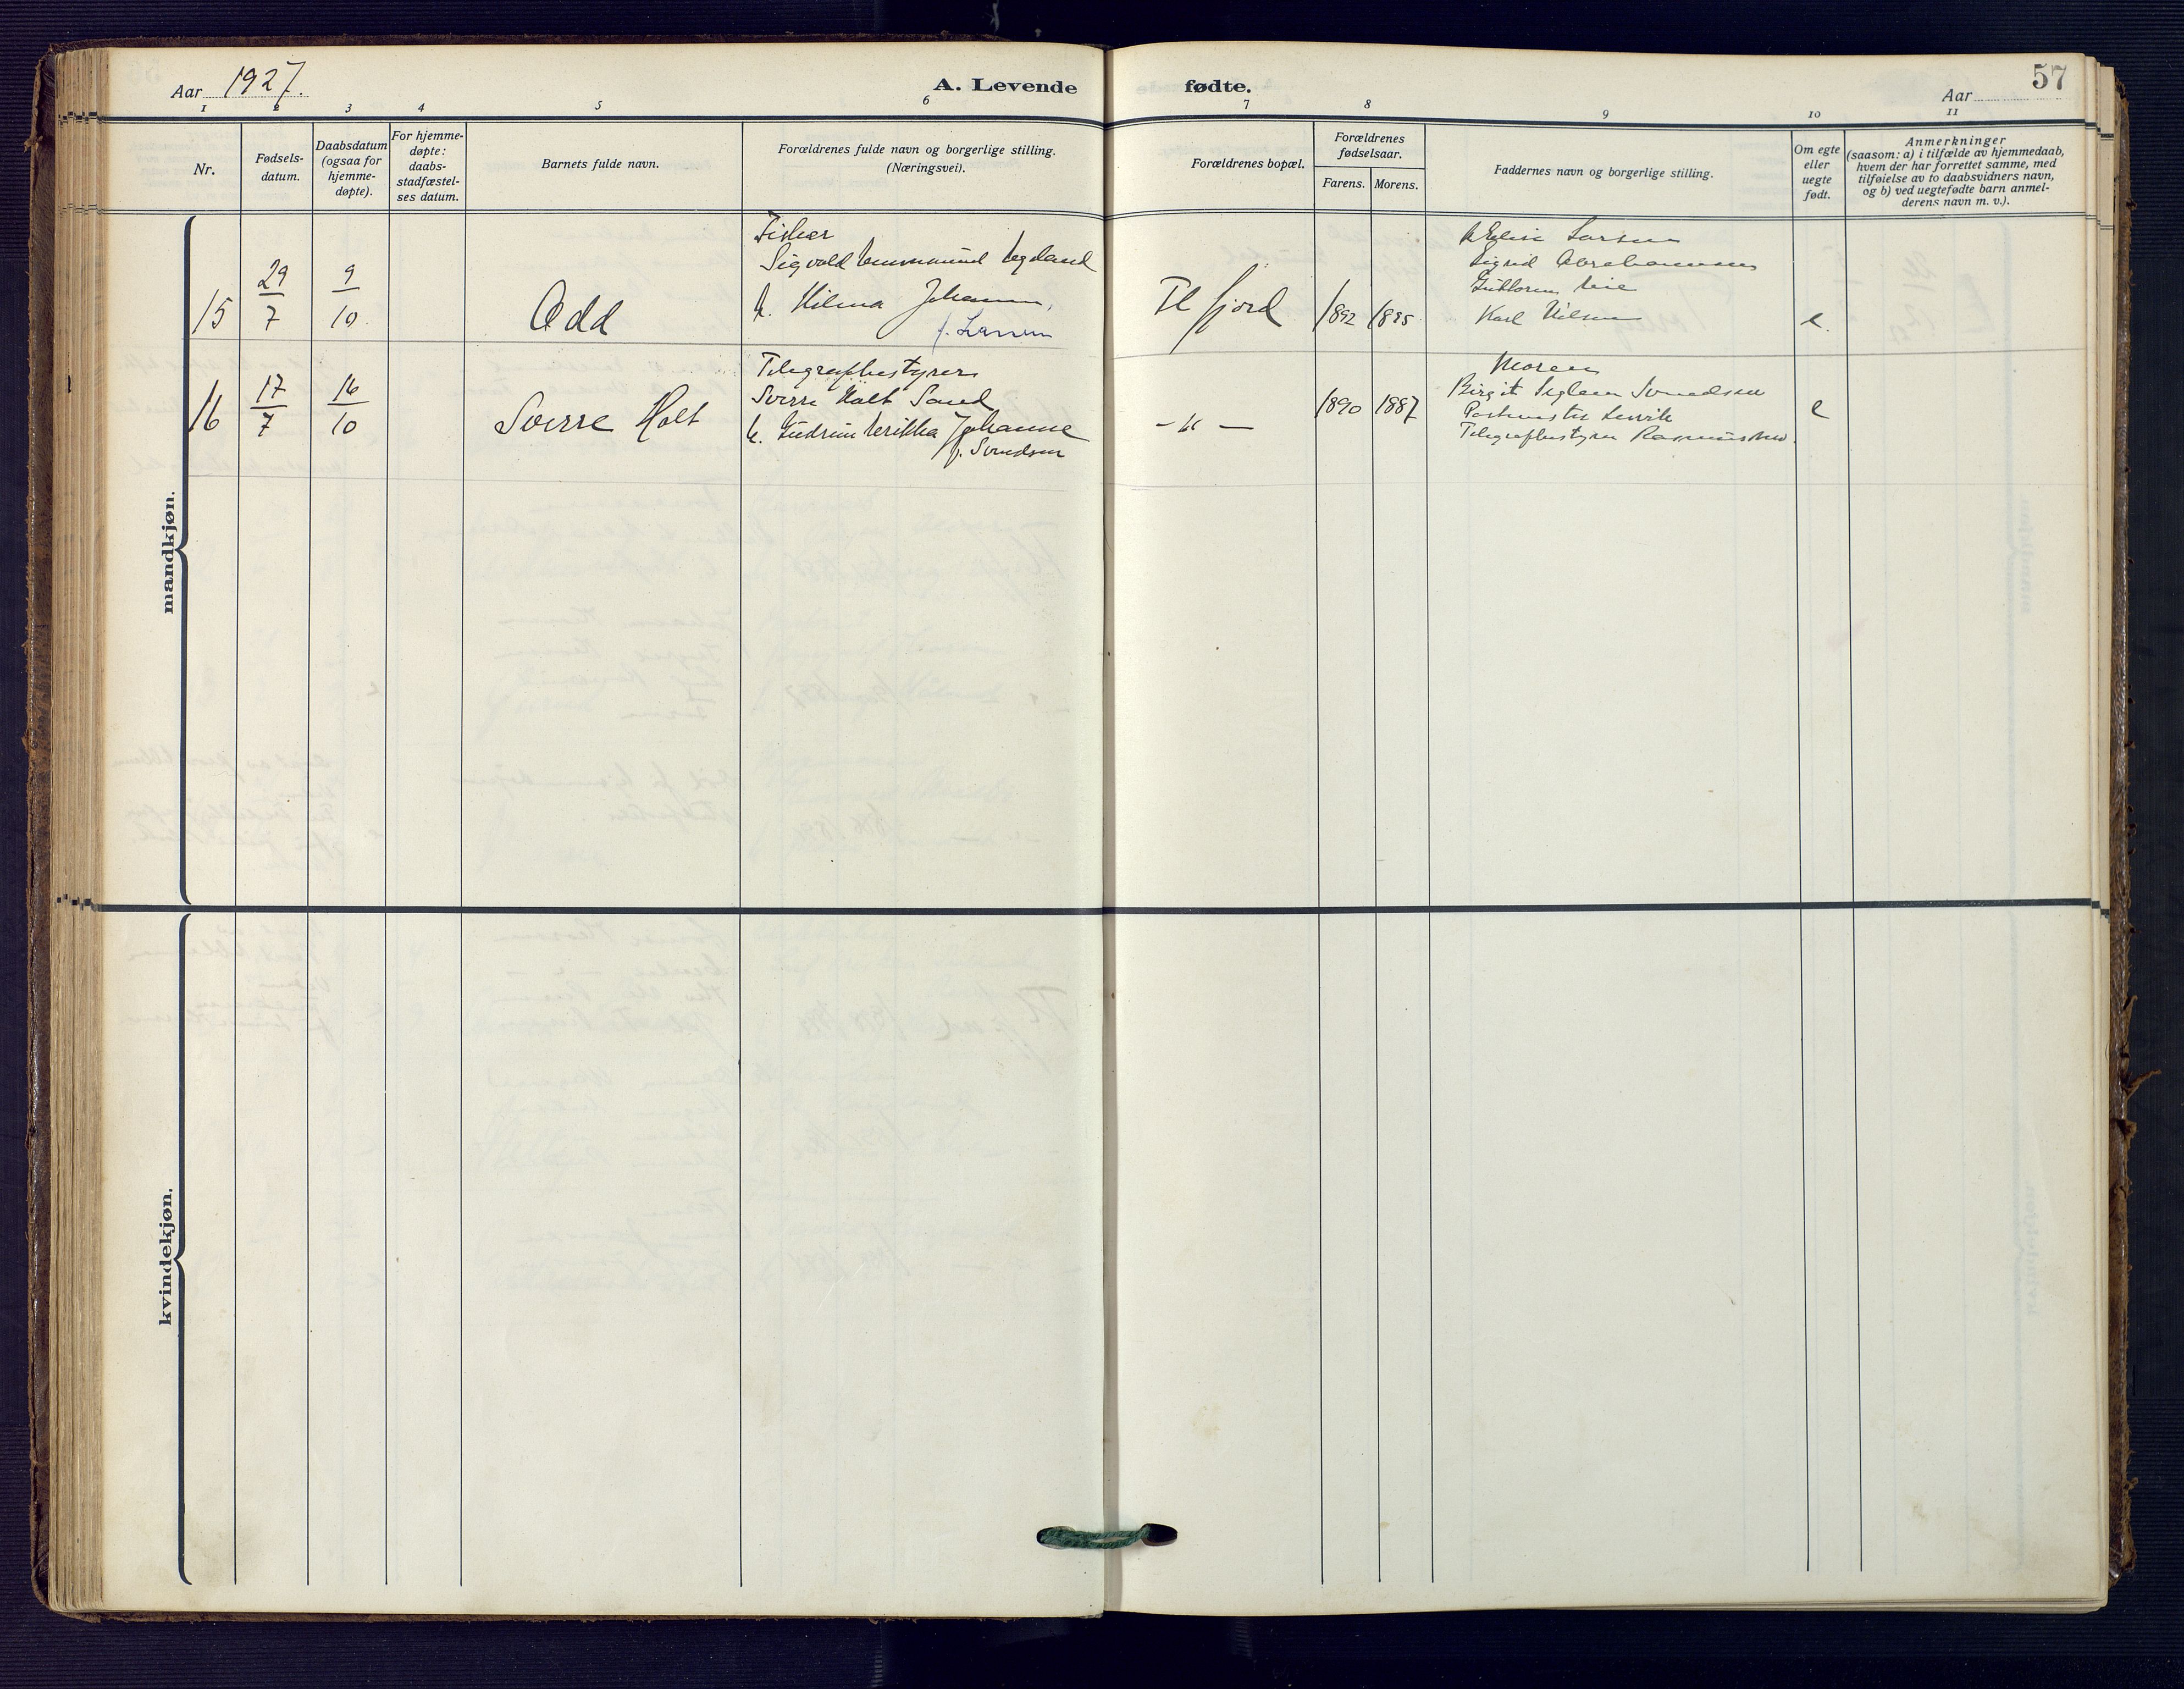 Aar 1927.
A. Levende fødte.
57
Aar
1 2 3 4 5 6 7 8 9 10 11
Nr.
Fødsels-
datum.
Daabsdatum
(ogsaa for
hjemme-
døpte).
For hjemme-
døpte:
daabs-
stadfæstel-
ses datum.
Barnets fulde navn.
Forældrenes fulde navn og borgerlige stilling.
(Næringsvei).
Forældrenes bopæl.
Forældrenes
fødselsaar.
Farens. Morens.
Faddernes navn og borgerlige stilling.
Om egte
eller
uegte
født.
Anmerkninger
(saasom: a) i tilfælde av hjemmedaab,
hvem der har forrettet samme, med
tilføielse av to daabsvidners navn,
og b) ved uegtefødte barn anmel-
derens navn m. v.).
mandkjøn.
15
29/7
9/10
Odd
Fisker
Sigvald
h. Hilma Johanne,
f. Larsen
Fl fjord
1892 1895
Larsen
Sigrid Abrahamsen
Karl Nilsen
e.
16
17/7
16/10
Sverre Holt
Telegrafbestyrer
Sverre Holt Sand
h. Gudrun Johanne
f. Svendsen
- " -
1890 1887
Moren
Birgit Svendsen
Postmester
Telegrafbestyrer Rasmussen.
e
kvindekjøn.